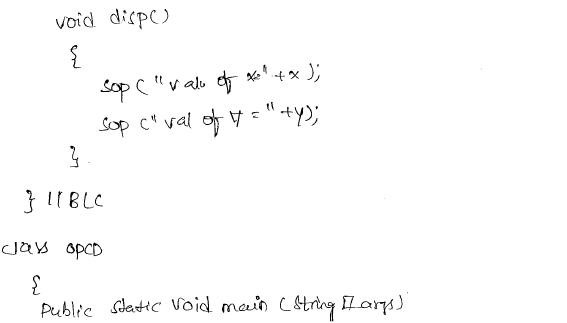 void disp()
{
sop ("val of x="+x);
sop ("val of y = "+y);
}
} // BLC
class opcd
{
public static void main (String [] args)